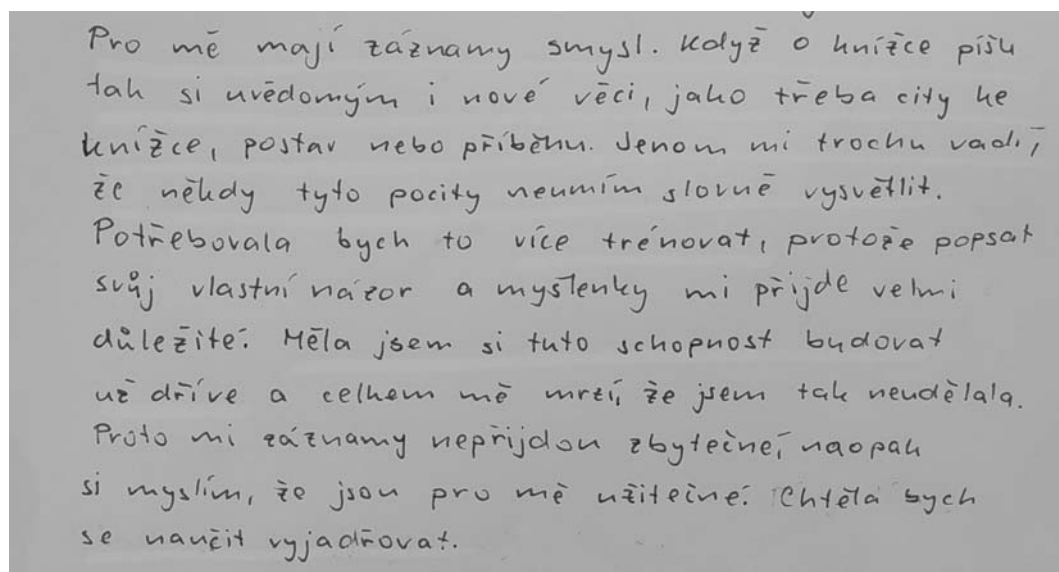 Pro mě mají záznamy smysl. Když o knížce píšu
tak si uvědomým i nové věci, jako třeba city ke
knížce, postav nebo příběhu. Jenom mi trochu vadí,
že někdy tyto pocity neumím slovně vysvětlit.
Potřebovala bych to více trénovat, protože popsat
svůj vlastní názor a myšlenky mi přijde velmi
důležité. Měla jsem si tuto schopnost budovat
už dříve a celkem mě mrzí, že jsem tak neudělala.
Proto mi záznamy nepřijdou zbytečné, naopak
si myslím, že jsou pro mě užitečné. Chtěla bych
se naučit vyjadřovat.